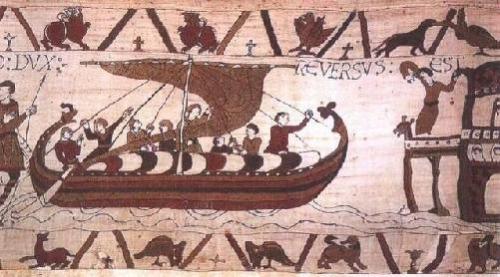 D : DVX : REVERSVS : EST